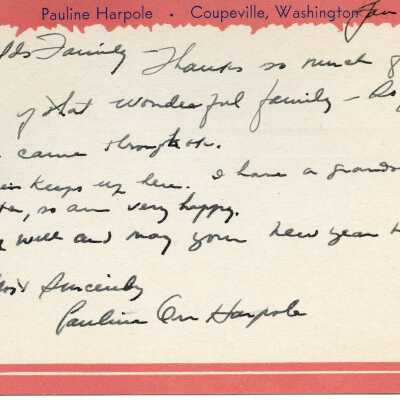 Pauline Harpole • Coupeville, Washington
Jan
Family - Thanks so much
of that wonderful family - So
came through ok.
keeps up here. I have a
, so am very happy.
will and may your new year
Sincerely
Pauline Orr Harpole